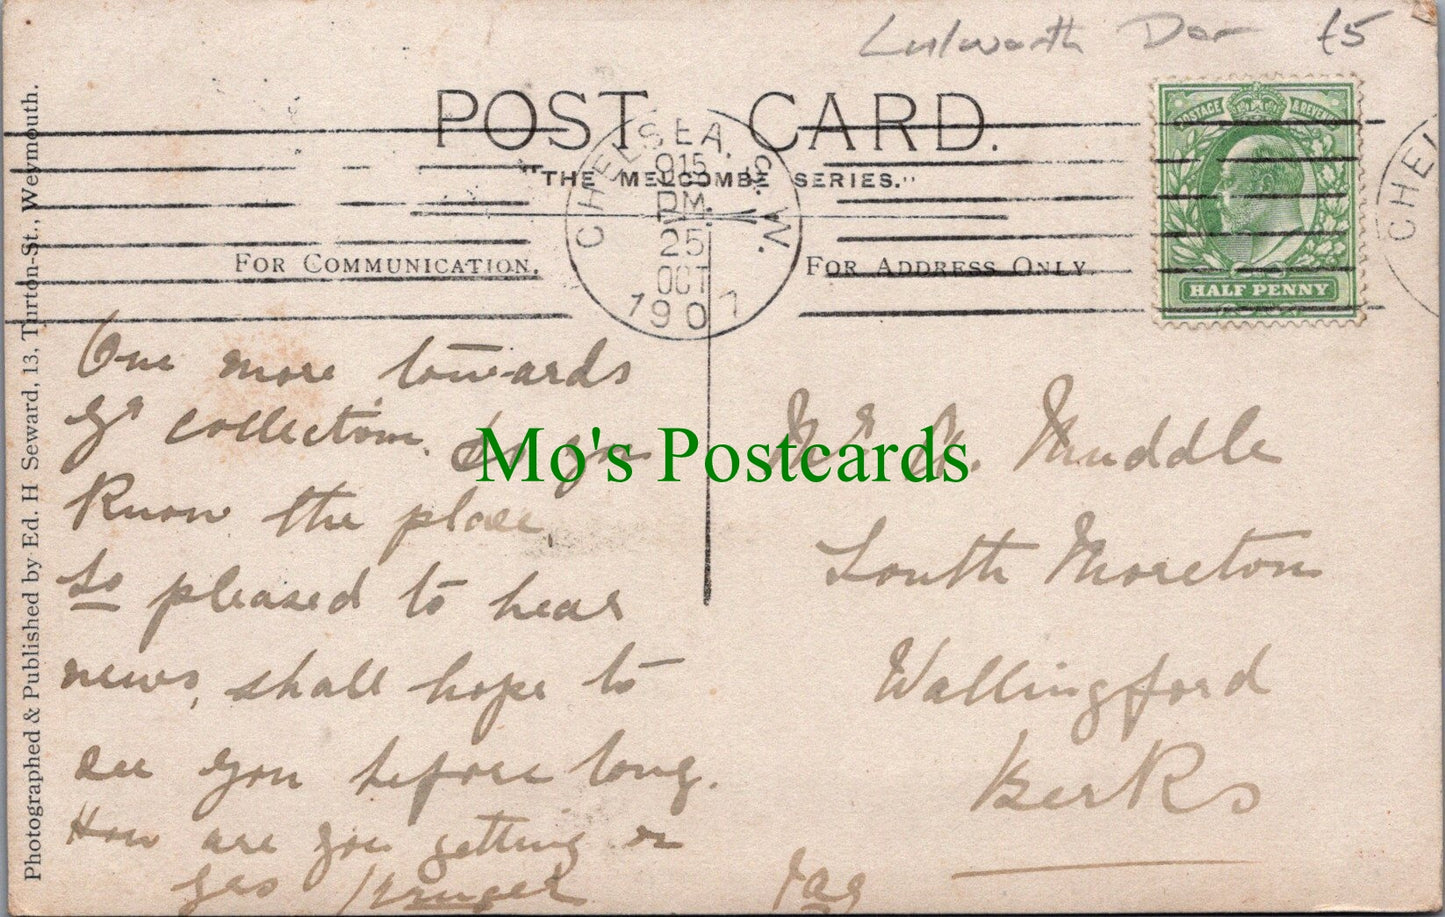 Lulworth Dor £5
POST CARD.
"THE MELCOMBE SERIES."
FOR COMMUNICATION.
FOR ADDRESS ONLY
CHELSEA. S.W.
9 15
PM
25
OCT
1907
CHEL
POSTAGE & REVENUE
HALF PENNY
Photographed & Published by Ed. H Seward, 13, Turton-St., Weymouth.
One more towards
yr collection. Do you
know the place
So pleased to hear
news, shall hope to
see you before long.
How are you getting on
Mo's Postcards
Muddle
South Moreton
Wallingford
Berks